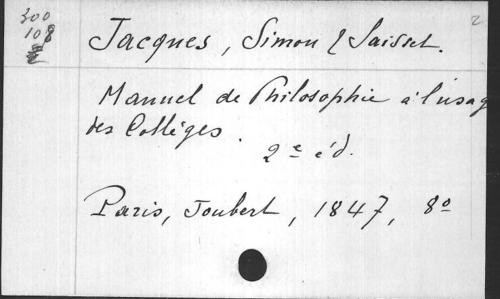 300
108
2
Jacques, Simon & Saisset.
Manuel de Philosophie à l'usag
des Collèges.
2e éd.
Paris, Joubert, 1847, 8o